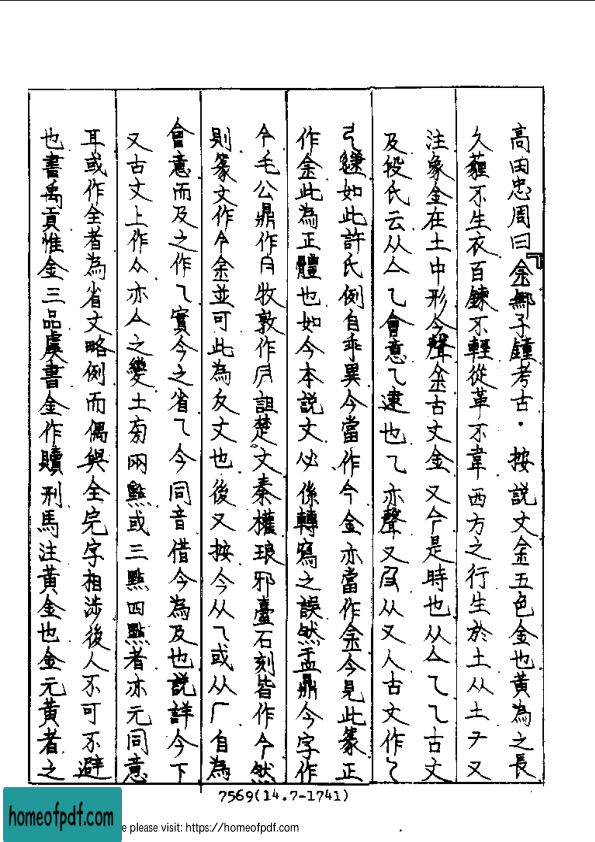 高田忠周曰「余鄉子鐘考古・按說文金五色金也黃為之長
久薶不生衣百鍊不輕從革不韋西方之行生於土从土ナ又
注象金在土中形今聲金古文金又今是時也从亼乁乁古文
及段氏云从亼乁會意乁逮也乁亦聲又从又人古文作乁
引繇如此許氏例自乖異今當作今金亦當作金今見此篆正
作金此為正體也如今本說文必係轉寫之誤然盂鼎今字作
今毛公鼎作牧敦作詛楚文秦權琅邪臺石刻皆作今然
則篆文作今金並可此為反文也後又按今从乁或从厂自為
會意而及之作乁實今之省乁今同音借今為及也說詳今下
又古文上作亼亦亼之變土旁兩點或三點四點者亦元同意
耳或作全者為省文略例而偶與全完字相涉後人不可不避
也書禹貢惟金三品虞書金作贖刑馬注黃金也金元黃者之
7569(14.7-1741)
homeofpdf.com
e please visit: https://homeofpdf.com